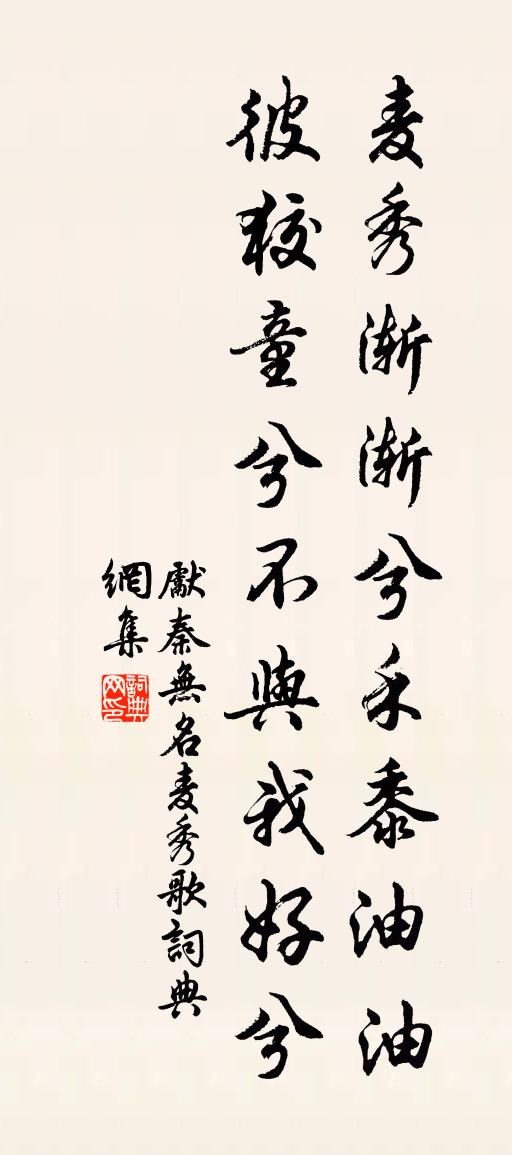 麦秀渐渐兮禾黍油油
彼狡童兮不與我好兮
獻秦無名麦秀歌詞典
網集
詞典
网印